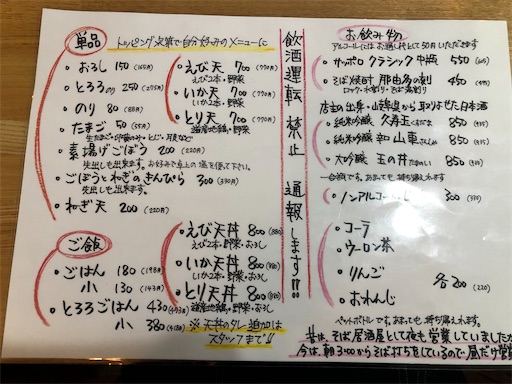 単品
トッピング次第で自分好みのメニューに
・おろし 150 (165円)
・とろろ 250 (275円)
・のり 80 (88円)
・たまご 50 (55円)
・素揚げごぼう 200 (220円)
先出しも出来ます。お好みで卓上の塩を使って下さい。
・ごぼうとねぎのきんぴら 300 (330円)
先出しも出来ます。
・ねぎ天 200 (220円)
・えび天 700 (770円)
えび2本・野菜
・いか天 700 (770円)
いか2本・野菜
・とり天 700 (770円)
・野菜
ご飯
・ごはん 180 (198円)
小 130 (143円)
・とろろごはん 430 (473円)
小 380 (418円)
・えび天丼 800 (880)
えび2本・野菜・おろし
・いか天丼 800 (880)
いか2本・野菜・おろし
・とり天丼 800 (880)
・野菜・おろし
※天丼のタレ追加は
スタッフまで!!
飲酒運転禁止 通報します!!
お飲み物
アルコールにはお通し代として50円いただきます
・サッポロクラシック中瓶 550 (605)
・そば焼酎 那由多の刻 450 (495)
ロック・水割り・そば湯割り
店主の出身・山形から取りよせた日本酒
・純米吟醸 850 (935)
・純米吟醸 和山車 850 (935)
・大吟醸 850 (935)
・ノンアルコール 300 (330)
・コーラ
・ウーロン茶
・りんご
・おれんじ
各200 (220)
ペットボトルです。あまっても、持ち帰えれます。
昔は、そば居酒屋として夜も営業していましたが
今は、朝3:00からそば打ちをしているので昼だけ営業